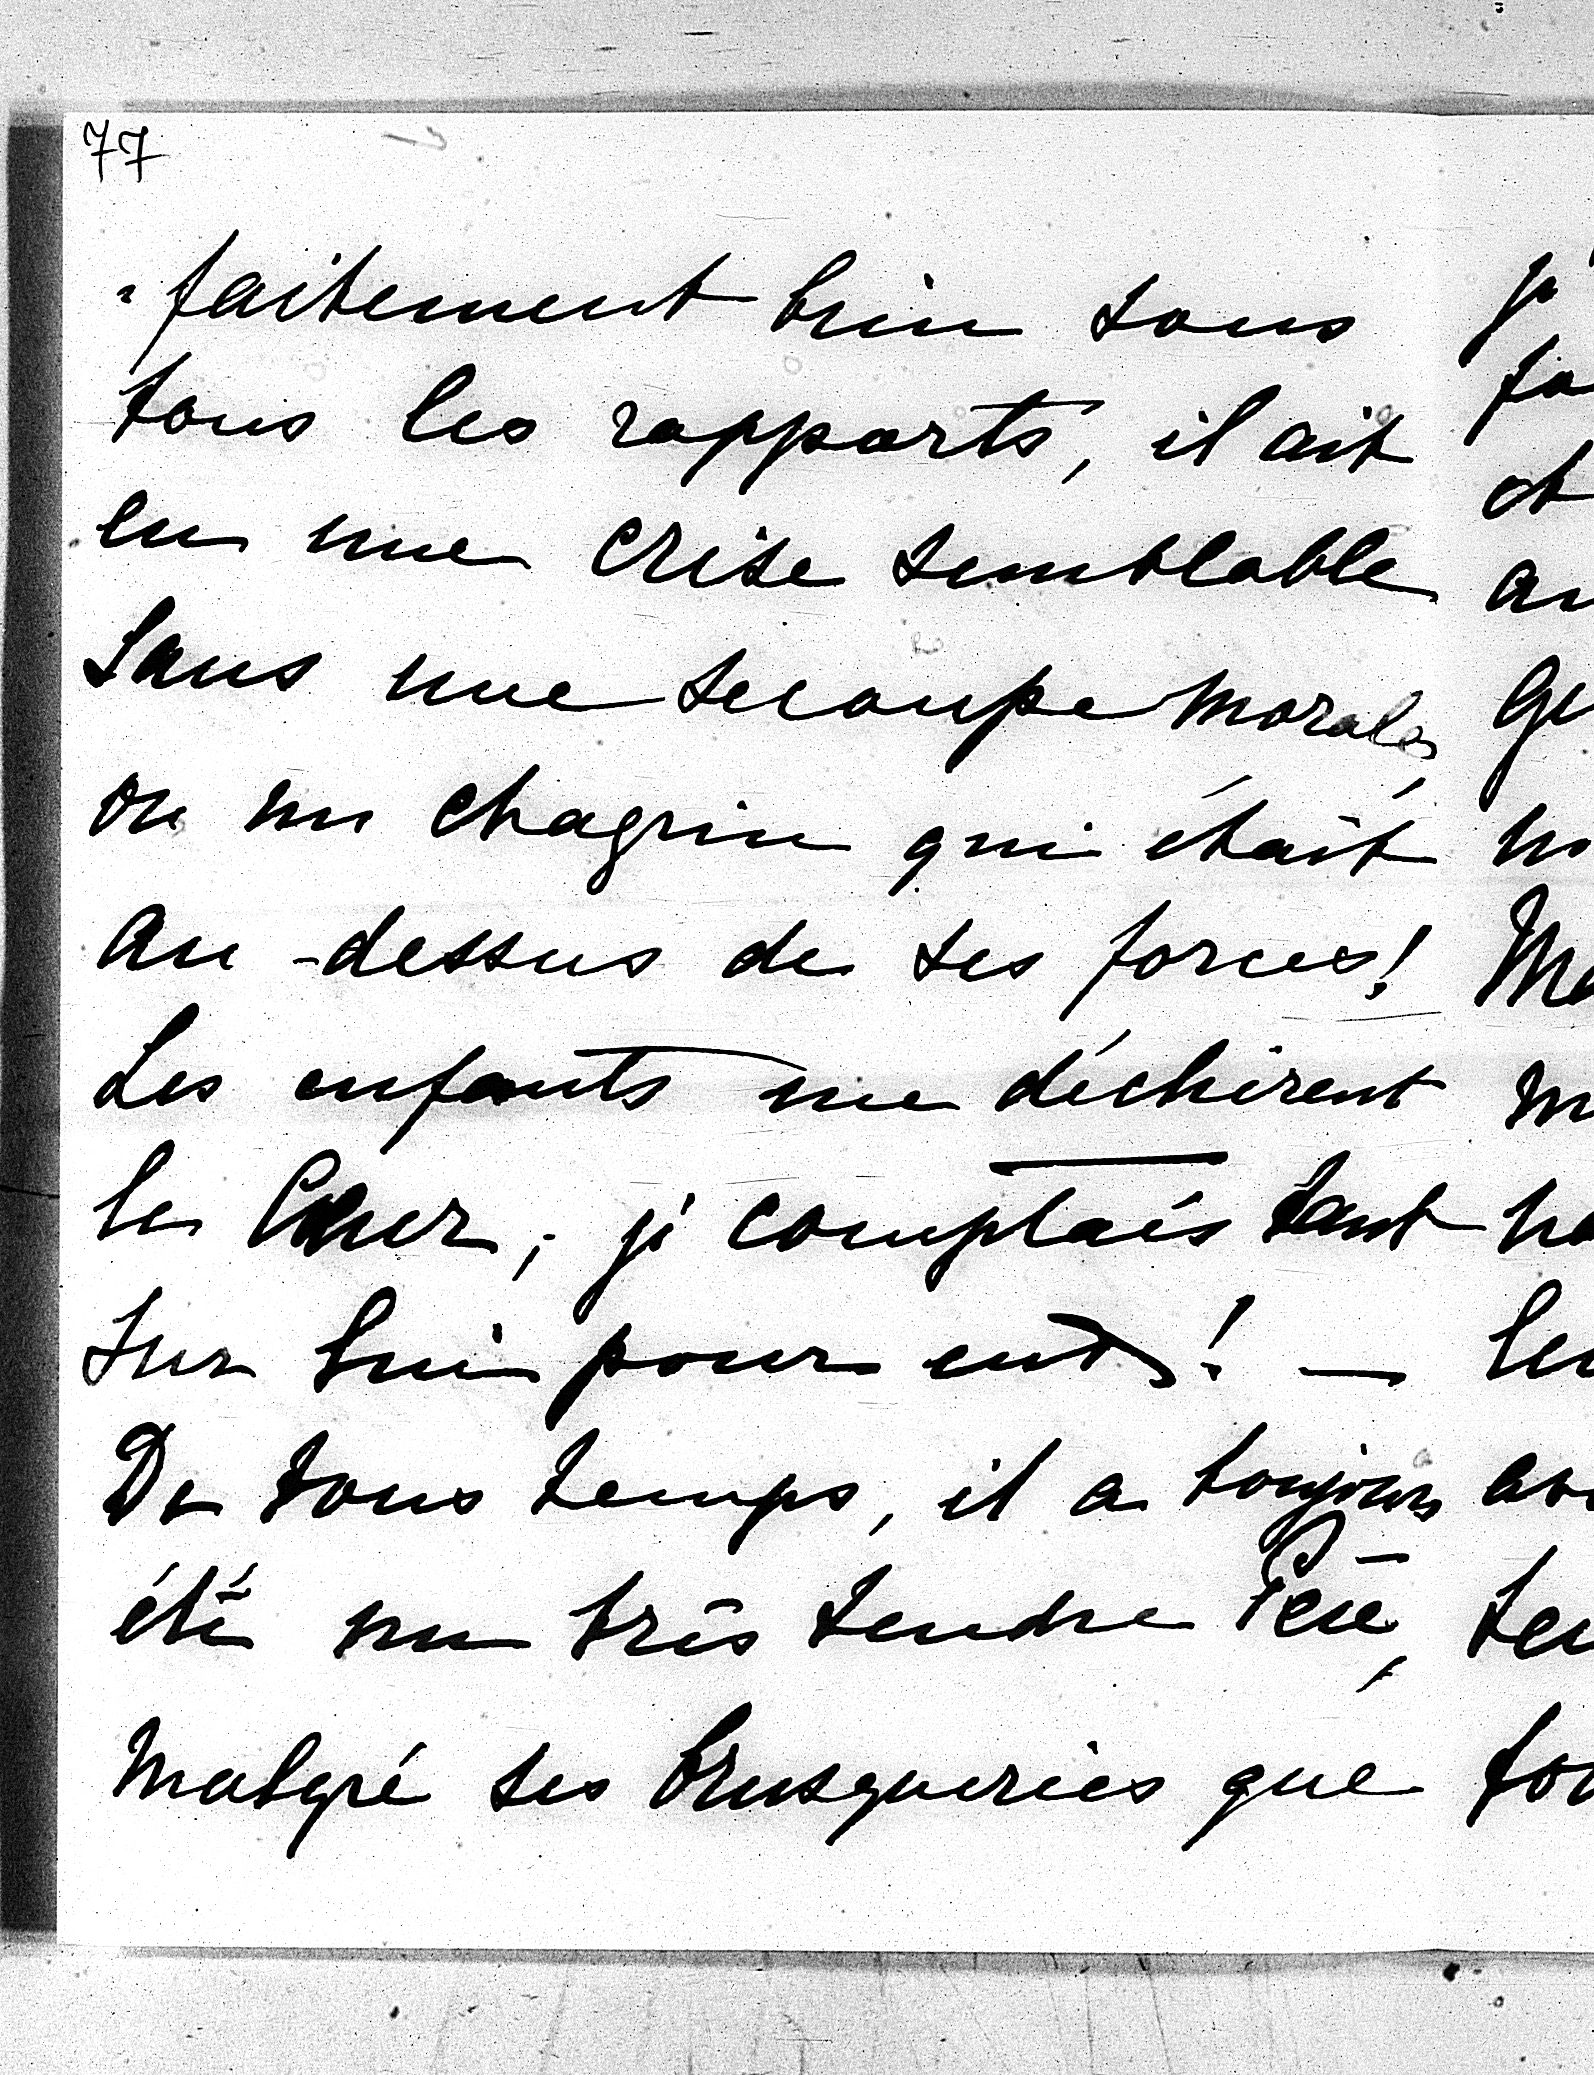 77
-faitement bien sous
tous les rapports, il ait
eu une crise semblable
sans une secoupe morale,
ou un chagrin qui était
au-dessus de ses forces!
Les enfants me déchirent
le Cœur, je comptais tant
sur Lui pour eux! —
De tous temps, il a toujours
été un très tendre Père,
malgré ses brusqueries que